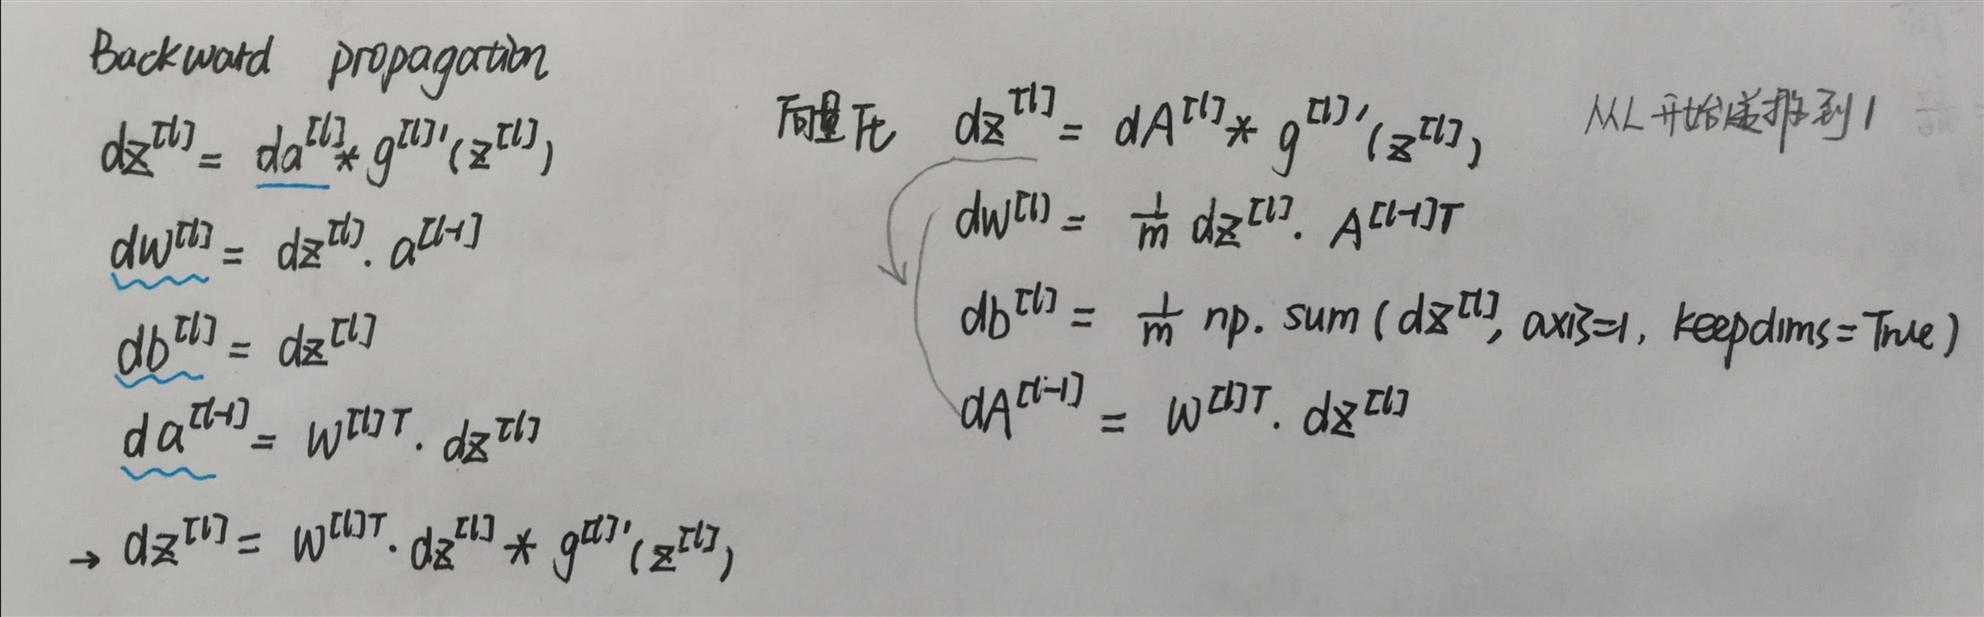 Backward propagation
dz^[l] = da^[l] * g^[l]'(z^[l])
dw^[l] = dz^[l] · a^[l-1]
db^[l] = dz^[l]
da^[l-1] = w^[l]T · dz^[l]
→ dz^[l] = w^[l]T · dz^[l] * g^[l]'(z^[l])
向量化 dz^[l] = dA^[l] * g^[l]'(z^[l])
dw^[l] = 1/m dz^[l] · A^[l-1]T
db^[l] = 1/m np.sum(dz^[l], axis=1, keepdims=True)
dA^[l-1] = w^[l]T · dz^[l]
从L开始递推到1